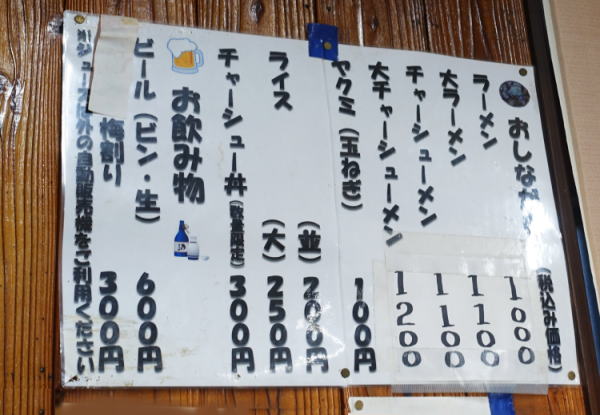 おしながき(税込み価格)
ラーメン 1000
大ラーメン 1100
チャーシューメン 1100
大チャーシューメン 1200
ヤクミ(玉ねぎ) 100円
ライス (並) 200円
(大) 250円
チャーシュー丼(数量限定) 300円
お飲み物
ビール(ビン・生) 600円
梅割り 300円
※ジュースは外の自動販売機をご利用ください